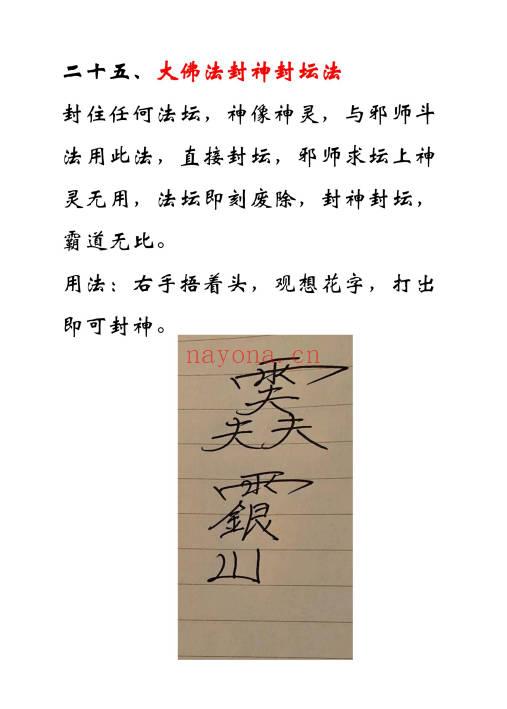 二十五、大佛法封神封坛法
封住任何法坛，神像神灵，与邪师斗
法用此法，直接封坛，邪师求坛上神
灵无用，法坛即刻废除，封神封坛，
霸道无比。
用法：右手捂着头，观想花字，打出
即可封神。
nayona.cn
夫夫
銀
山